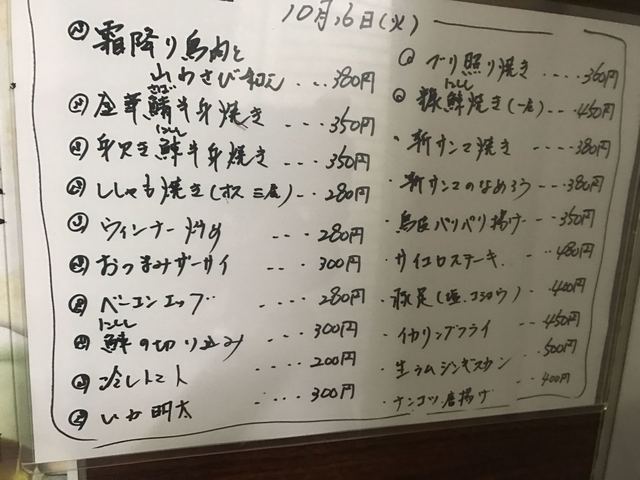 10月16日(火)
霜降り鳥肉と
山わさび和え ... 380円
さば
金華鯖半身焼き ... 350円
にしん
身欠き鰊半身焼き ... 350円
ししゃも焼き(オス 三尾) ... 280円
ウィンナー炒め ... 280円
おつまみザーサイ ... 300円
ベーコンエッグ ... 280円
にしん
鰊の切り込み ... 300円
冷しトマト ... 200円
いか明太 ... 300円
ブリ照り焼き ... 360円
にしん
糠鰊焼き(一尾) ... 450円
・新サンマ焼き ... 380円
・新サンマのなめろう ... 380円
・鳥皮パリパリ揚げ ... 350円
・サイコロステーキ ... 480円
・豚足(塩、コショウ) ... 400円
・イカリングフライ ... 450円
・生ラムジンギスカン ... 500円
・ナンコツ唐揚げ ... 400円